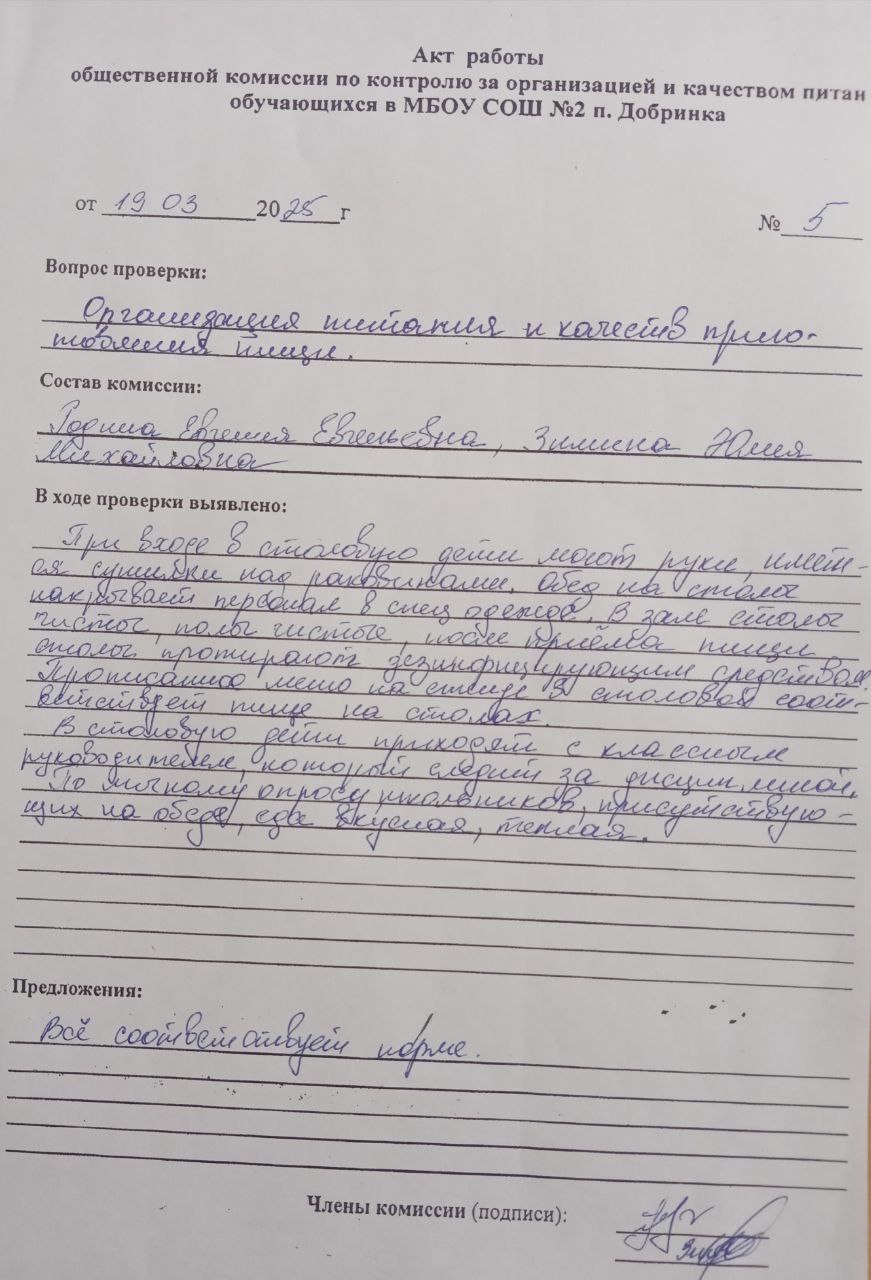 Акт работы
общественной комиссии по контролю за организацией и качеством питан
обучающихся в МБОУ СОШ №2 п. Добринка
от 19 03 2025 г
№ 5
Вопрос проверки:
Организация питания и качеств приго-
товления пищи.
Состав комиссии:
Родина Евгения Евгеньевна, Зимина Юлия
Михайловна
В ходе проверки выявлено:
При входе в столовую дети моют руки, имеет-
ся сушилки над раковинами. Обед на столы
накрывает персонал в спец одежде. В зале столы
чистые, полы чистые, после приёма пищи
столы протирают дезинфицирующим средством.
Прописанное меню на стенде в столовой соот-
ветствует пище на столах.
В столовую дети приходят с классным
руководителем, который следит за дисциплиной.
По личному опросу школьников, присутствую-
щих на обеде, еда вкусная, теплая.
Предложения:
Всё соответствует норме.
Члены комиссии (подписи):